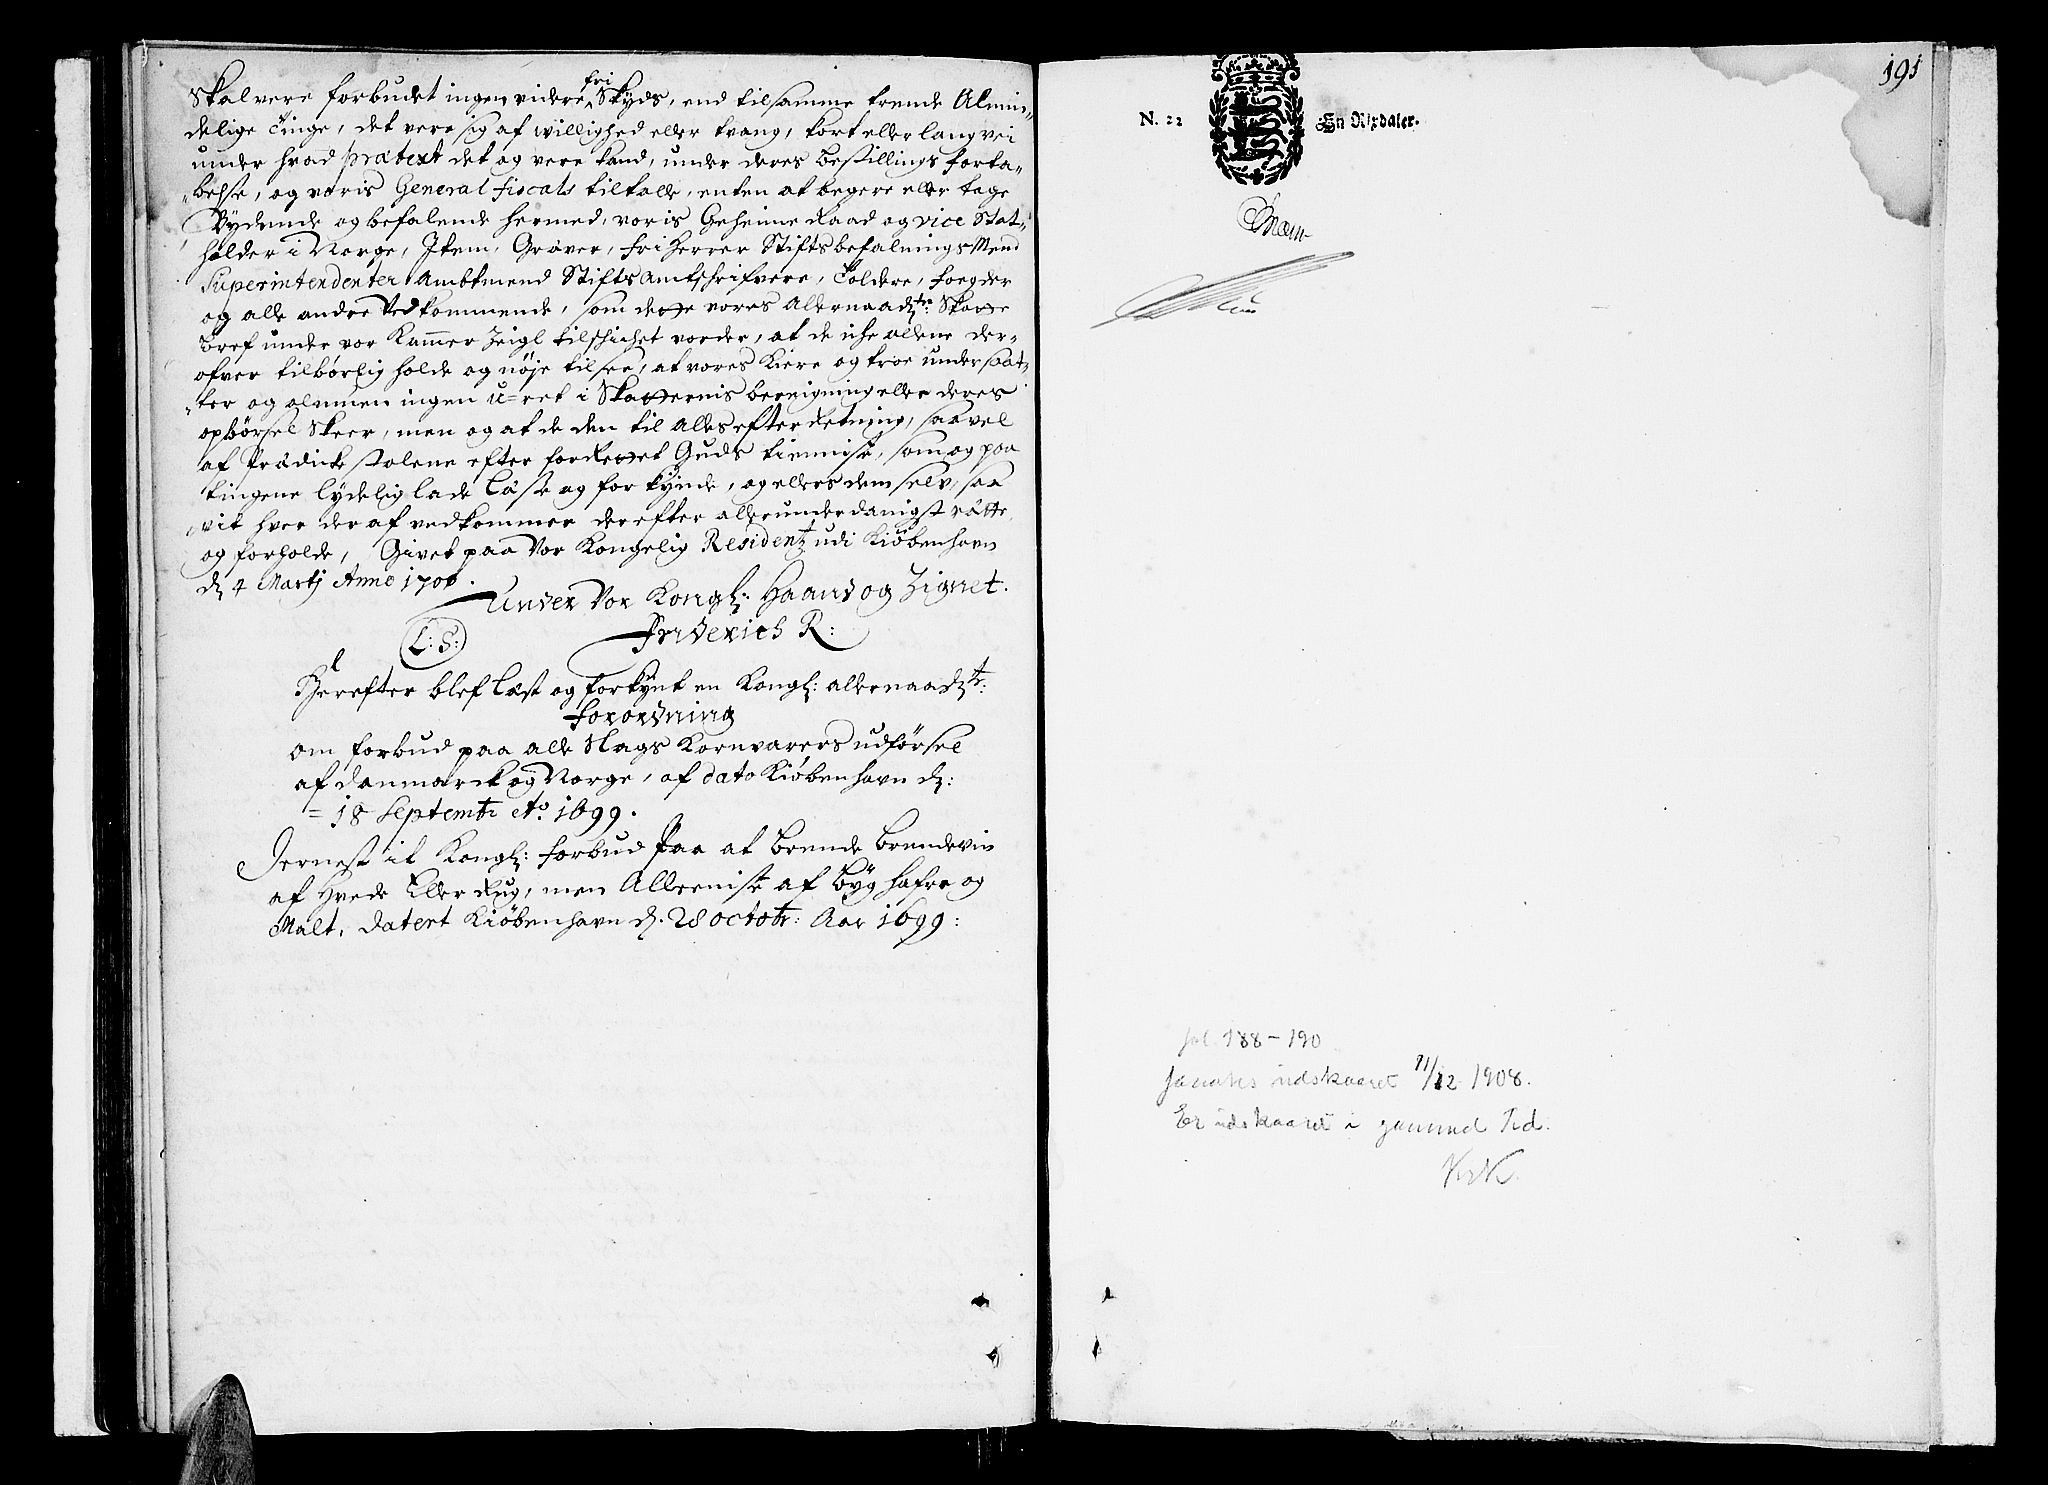 Skal vere forbudet ingen videre fri Skyds, end til samme trende Almin-
delige Tinge, det vere sig af willighed eller tvang, kort eller lang vei
under hvad prætext det og vere kand, under deres bestillings forta-
belse, og voris General fiscals tiltalle, enten at begere eller tage
Bydende og befalende hermed, voris Geheime Raad og vice Stat-
holder i Norge, Item, Gräver, fri Herrer Stifts befalnings Mend
Superintendenter Ambtmend Stifts Amtschrifvere, Toldere, foegder
og alle andre vedkommende, som dette vores allernaadste Skatte
bref under vor Kammer Zeigl tilschichet vorder, at de iche allene der-
ofver tilbørlig holde og nøje tilsee, at vores Kiere og troe undersaat-
ter og almuen ingen u-ret i Skatternis bereigning eller deres
opbörsel Skeer, men og at de den til alles efterretning, saavel
af Prædicke stolene efter forrettet Guds tienniste, som og paa
tingene lydelig lade læse og forkynde, og ellers dem selv, saa
vit hver der af vedkommer derefter allerunderdanigst rætte
og forholde, Givet paa Vor Kongelig Residentz udi Kiöbenhavn
d 4 Martj Anno 1700.
Under Vor Kongl: Haand og Zignet.
L: S: Friderich R:
Herefter blef Læst og forkynt en Kongl: allernaadst:
forordning
om forbud paa alle Slags Kornvarers udförsel
af Danmarck og Norge, af dato Kiöbenhavn d:
18 Septembr Ao 1699.
Dernest it Kongl: forbud Paa at brende brendeviin
af Hvede Eller Rug, men Alleeniste af byg hafre og
Malt, Datert Kiöbenhavn d. 28 octobr: Aar 1699:
191
N. 22 En Rixdaler.
fol. 188-190
udskaaret 11/12 1908.
Er udskaaret i gammel Tid.